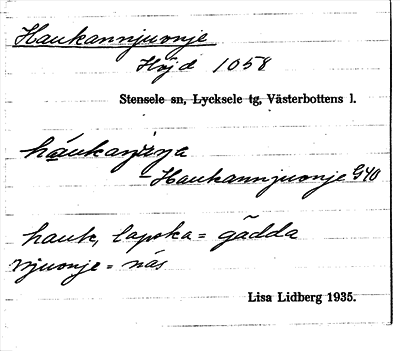 Haukannjuonje
Höjd 1058
Stensele sn, Lycksele tg, Västerbottens l.
- Haukannjuonje G40
hauk, lapska = gädda
njuonje = näs
Lisa Lidberg 1935.